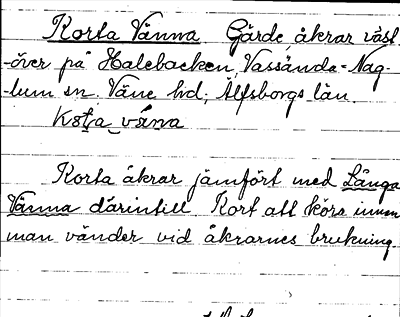 Korta Vänna Gärde, åkrar väst-
-över på Halebacken, Vassända-Nag-
-lum sn. Väne hd, Älfsborgs län.
Kota väna
Korta åkrar jämfört med Långa
Vänna därintill. Kort att köra innan
man vänder vid åkrarnes brukning.